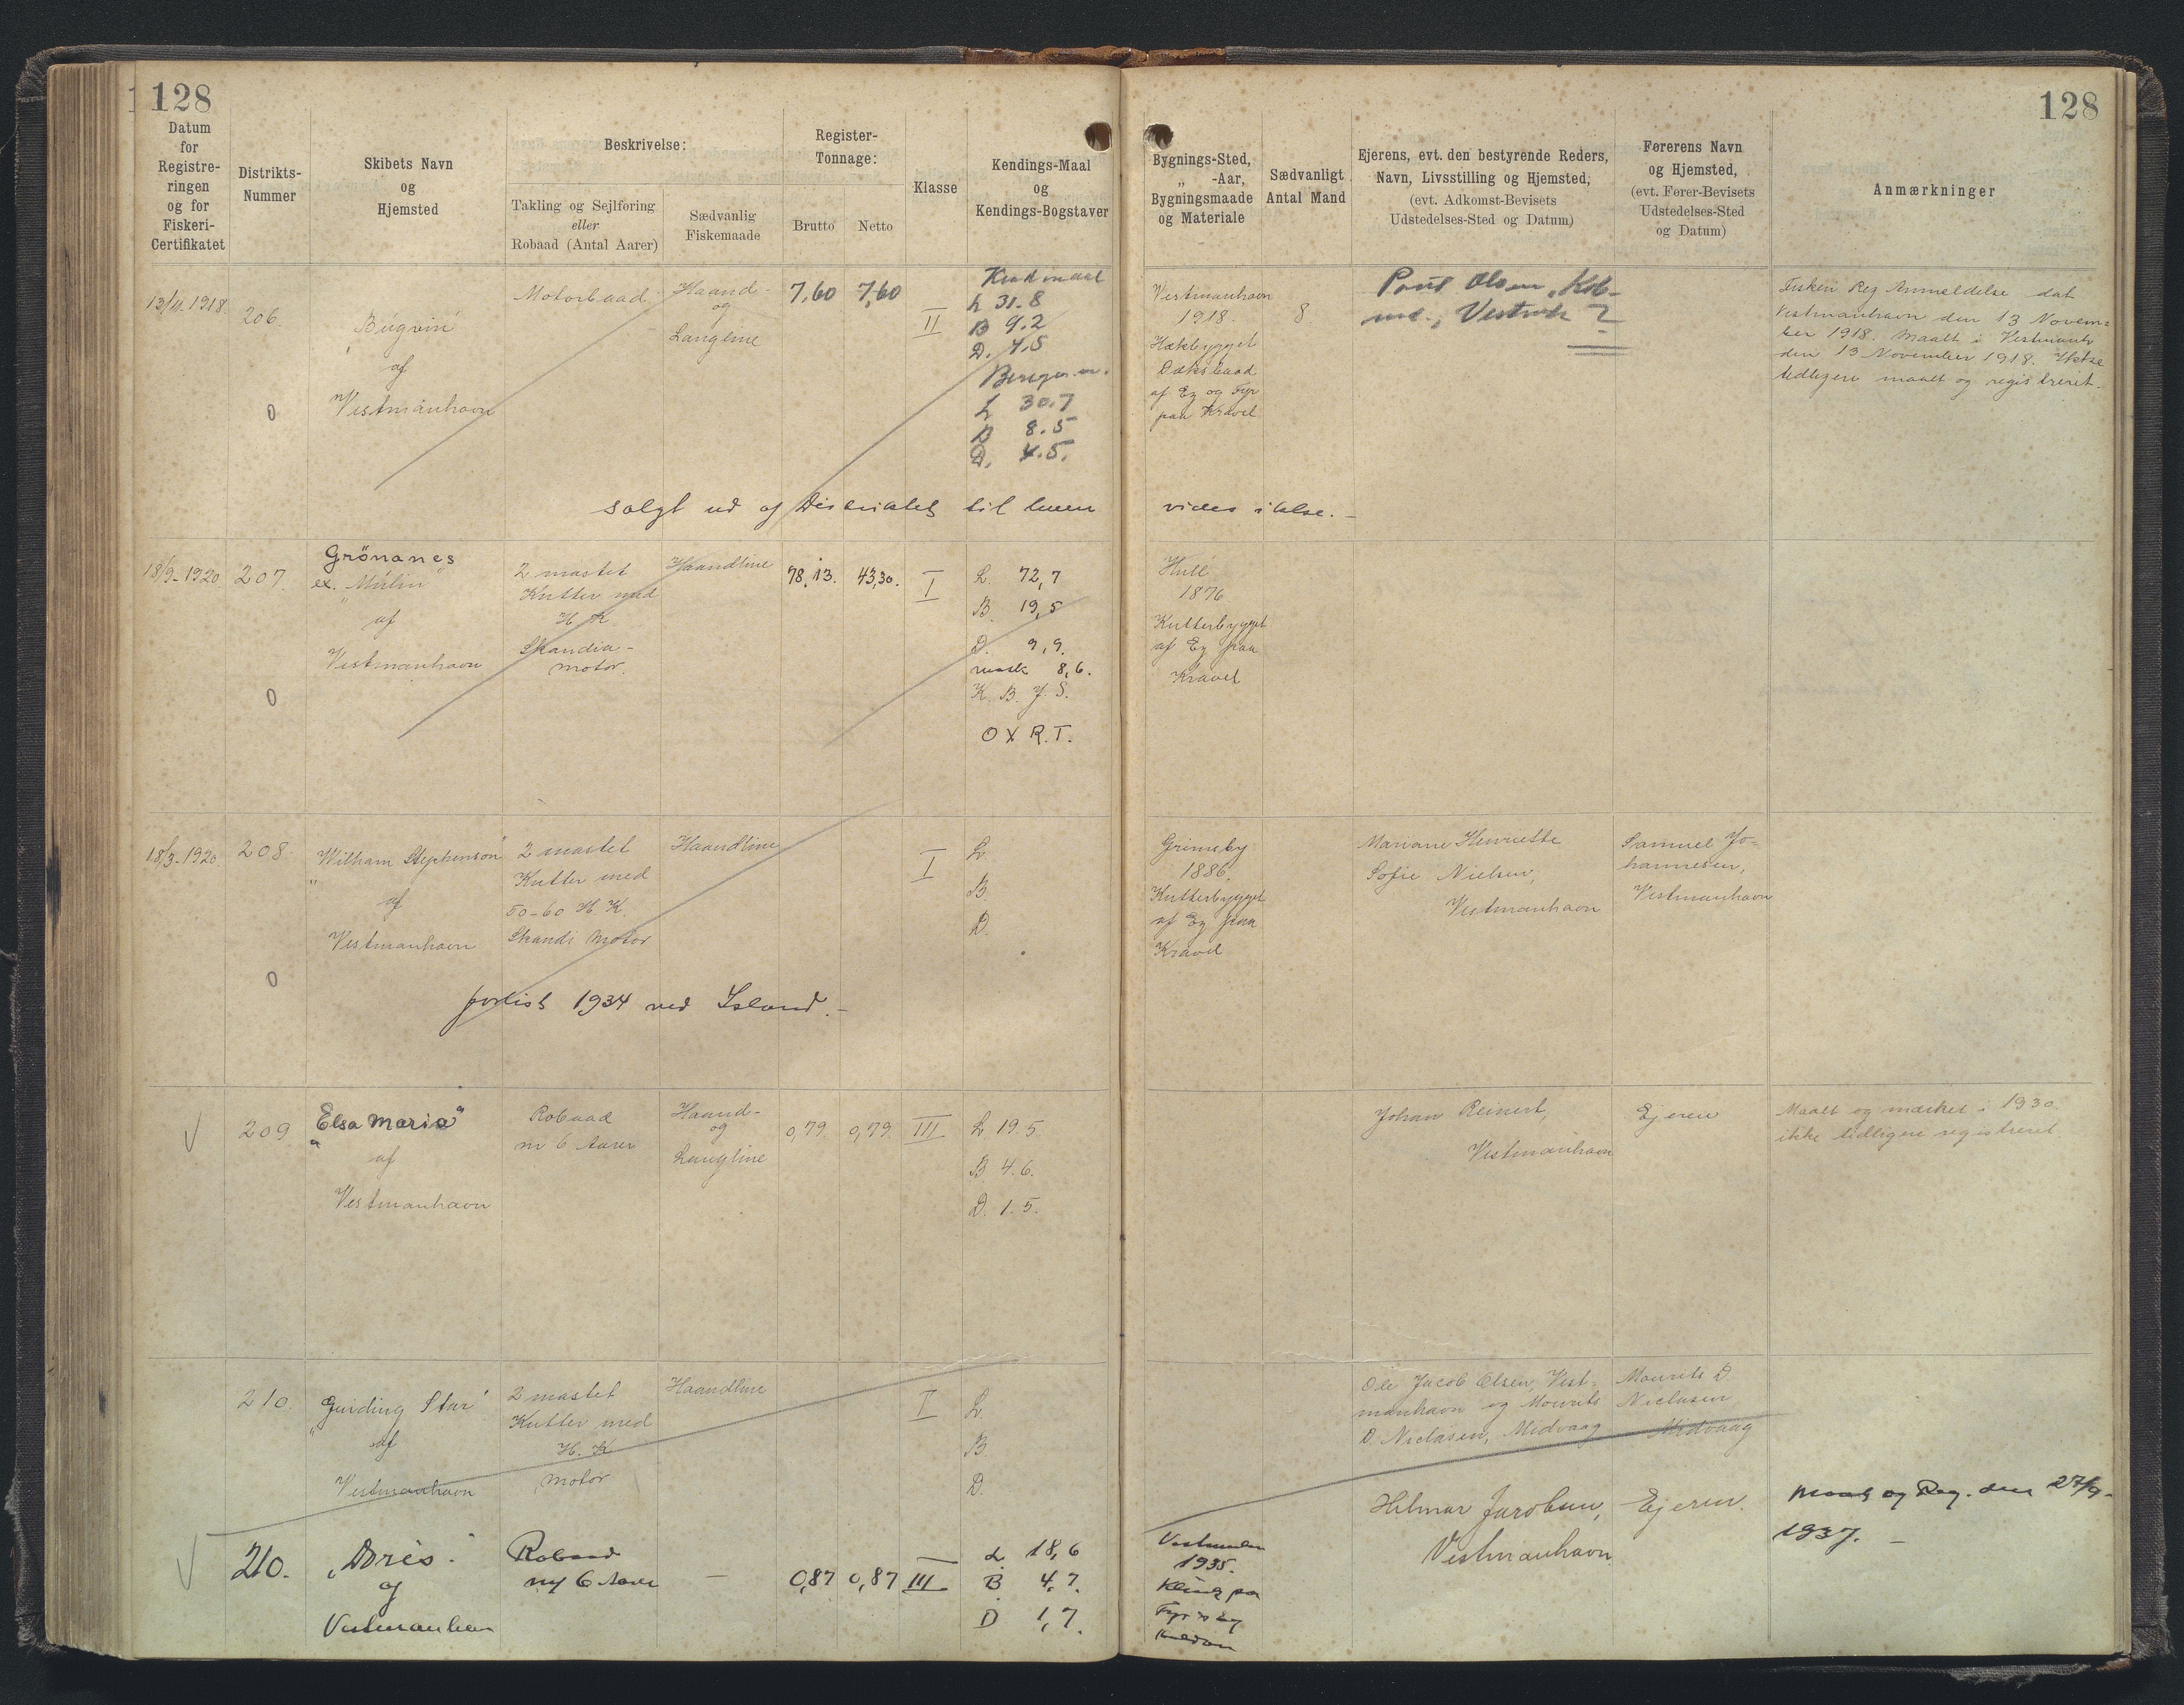 128
128
Datum
for
Registre-
ringen
og for
Fiskeri-
Certifikatet
Distrikts-
Nummer
Skibets Navn
og
Hjemsted
Beskrivelse:
Takling og Sejlføring
eller
Robaad (Antal Aarer)
Sædvanlig
Fiskemaade
Register-
Tonnage:
Brutto
Netto
Klasse
Kendings-Maal
og
Kendings-Bogstaver
Bygnings-Sted,
„ -Aar,
Bygningsmaade
og Materiale
Sædvanligt
Antal Mand
Ejerens, evt. den bestyrende Reders,
Navn, Livsstilling og Hjemsted,
(evt. Adkomst-Bevisets
Udstedelses-Sted og Datum)
Førerens Navn
og Hjemsted,
(evt. Fører-Bevisets
Udstedelses-Sted
og Datum)
Anmærkninger
13/11.1918.
206.
0
„Búgvin"
af
Vestmanhavn
Motorbaad
Haand-
og
Langline
7,60
7,60
II
Kendmaal
L 31.8
B 9.2
D. 4.5
L 30.7
B 8.5
D. 4.5.
Vestmanhavn
1918.
Hækbygget
Dæksbaad
af Eg og Fyr
paa Kravel
8
Poul Olsen, Køb-
Fisken Reg Anmeldelse dat
Vestmanhavn den 13 Novem-
ber 1918. Maalt i Vestmanh
den 13 November 1918. Ikke
tidligere maalt og registreret.
solgt ud af Distriktet til hvem vides ikke. -
18/9-1920.
207.
0
Grönanes
ex. „Múlin"
af
Vestmanhavn
2 mastet
Kutter med
H K
Skandia-
motor.
Haandline
98,13.
43,30.
I
L. 72,7
B. 19,5
D. 9,9.
mask 8,6.
K. B. J. S.
O X R. T.
Hull
1876
Kutterbygget
af Eg paa
Kravel
18/3-1920.
208.
0
„William Stephenson"
af
Vestmanhavn
2 mastet
Kutter med
50-60 H. K.
Skandi Motor
Haandline
I
L.
B.
D.
Grimsby
1886.
Kutterbygget
af Eg paa
Kravel
Mariane Henriette
Sofie Nielsen,
Vestmanhavn
Samuel Jo-
hannesen,
Vestmanhavn
forlist 1934 ved Island. -
209
„Elsa Maria"
af
Vestmanhavn
Robaad
m 6 Aarer
Haand-
og
Langline
0,79
0,79
III
L 19.5
B 4.6.
D. 1.5.
Johan Reinert,
Vestmanhavn
Ejeren
Maalt og mærket i 1930.
ikke tidligere registreret.
210.
„Guiding Star"
af
Vestmanhavn
2 mastet
Kutter med
H. K
motor
Haandline
I
L.
B.
D.
Ole Jacob Olsen, Vest-
manhavn og Mourits
D. Niclasen, Midvaag
Mourits D.
Niclasen
Midvaag
210.
„Doris"
af
Vestmanhavn
Robaad
m/ 6 Aarer
—
0,87
0,87
III
L 18,6
B 4,7.
D 1,7.
1935.
Hilmar Jacobsen,
Vestmanhavn.
Ejeren.
Maalt og Reg. den 27/9-
1937. -